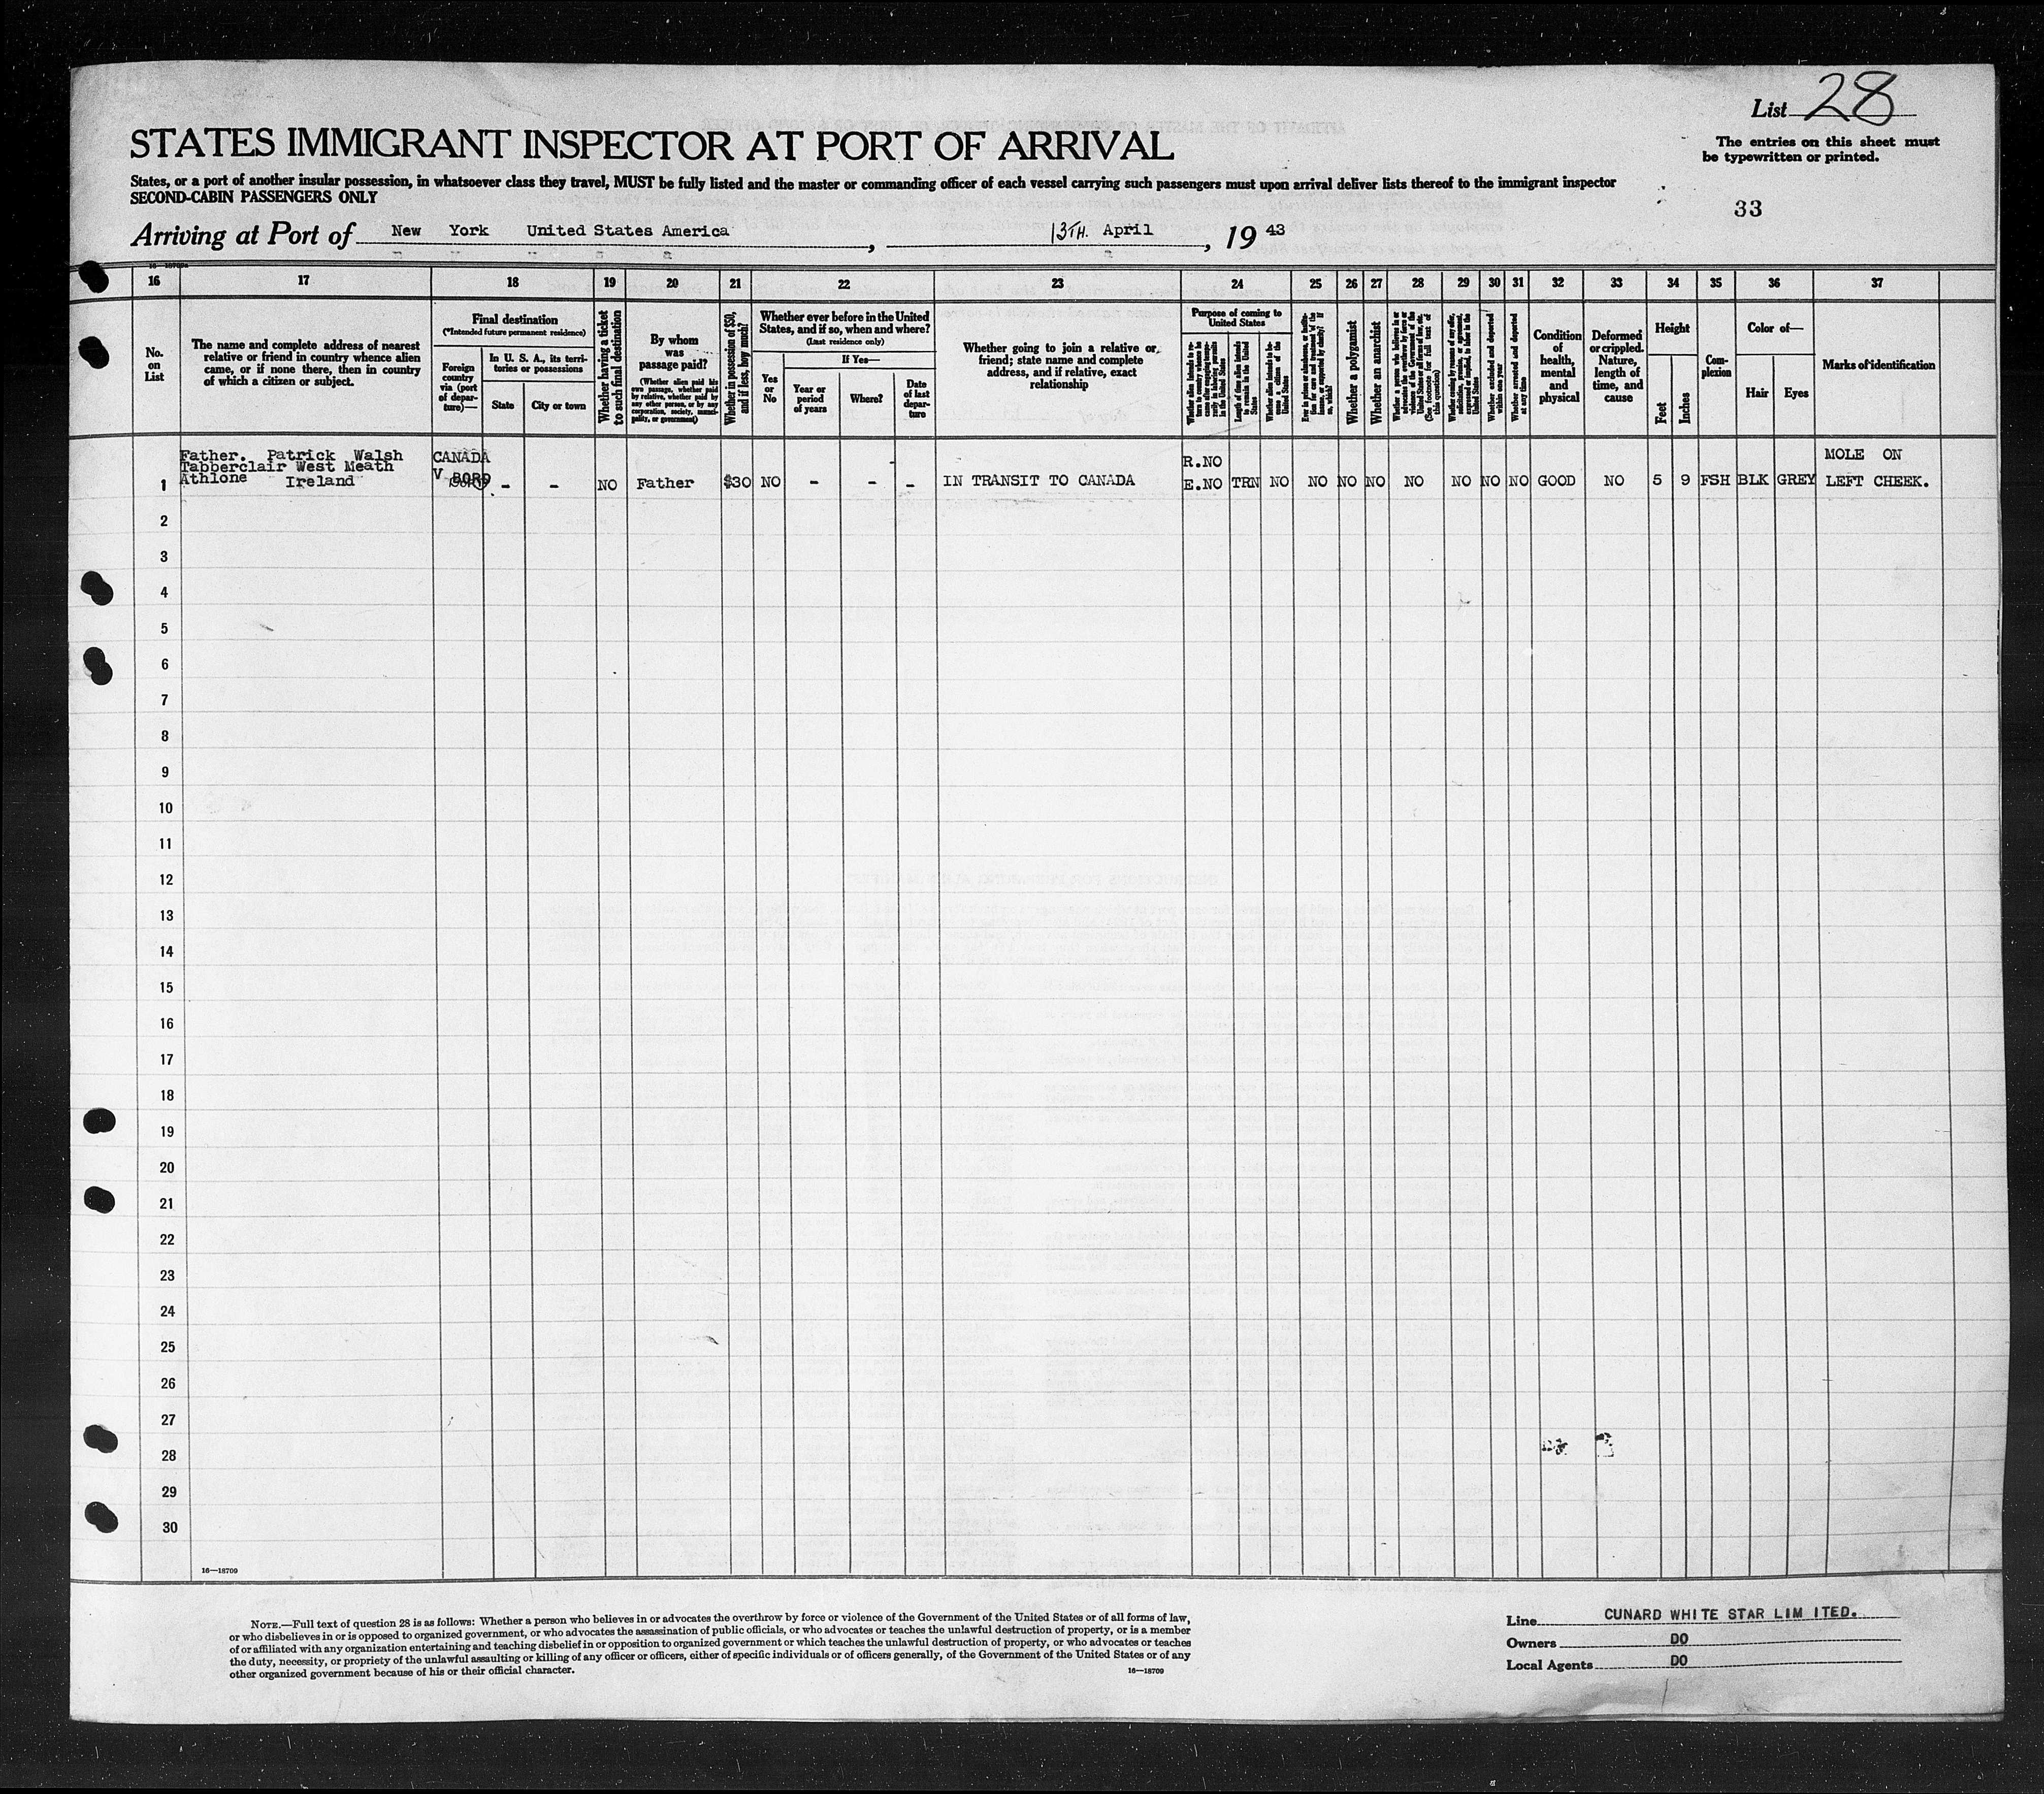 List 28
STATES IMMIGRANT INSPECTOR AT PORT OF ARRIVAL
The entries on this sheet must
be typewritten or printed.
States, or a port of another insular possession, in whatsoever class they travel, MUST be fully listed and the master or commanding officer of each vessel carrying such passengers must upon arrival deliver lists thereof to the immigrant inspector
SECOND-CABIN PASSENGERS ONLY
33
Arriving at Port of New York United States America, 13TH. April, 19 43
16 17 18 19 20 21 22 23 24 25 26 27 28 29 30 31 32 33 34 35 36 37
No.
on
List
The name and complete address of nearest
relative or friend in country whence alien
came, or if none there, then in country
of which a citizen or subject.
Final destination
(*Intended future permanent residence)
Foreign
country
via (port
of depar-
ture)—
In U. S. A., its terri-
tories or possessions
State
City or town
Whether having a ticket
to such final destination
By whom
was
passage paid?
(Whether alien paid his
own passage, whether paid
by relative, whether paid by
any other person, or by any
corporation, society, munici-
pality, or government)
Whether in possession of $50,
and if less, how much?
Whether ever before in the United
States, and if so, when and where?
(Last residence only)
Yes
or
No
If Yes—
Year or
period
of years
Where?
Date
of last
depar-
ture
Whether going to join a relative or
friend; state name and complete
address, and if relative, exact
relationship
Purpose of coming to
United States
Whether alien intends to re-
turn to country whence he
came after engaging tempo-
rarily in laboring pursuits
in the United States
Length of time alien intends
to remain in the United
States
Whether alien intends to be-
come a citizen of the
United States
Ever in prison or almshouse, or institu-
tion for care and treatment of the
insane, or supported by charity? If
so, which?
Whether a polygamist
Whether an anarchist
Whether a person who believes in or
advocates the overthrow by force or
violence of the Government of the
United States or all forms of law, etc.
(See footnote for full text of
this question)
Whether coming by reason of any offer,
solicitation, promise, or agreement,
expressed or implied, to labor in the
United States
Whether excluded and deported
within one year
Whether arrested and deported
at any time
Condition
of
health,
mental
and
physical
Deformed
or crippled.
Nature,
length of
time, and
cause
Height
Feet
Inches
Com-
plexion
Color of—
Hair
Eyes
Marks of identification
Father. Patrick Walsh CANADA MOLE ON
Tabberclair West Meath R.NO
Athlone Ireland
1 - - NO Father $30 NO - - - IN TRANSIT TO CANADA E.NO TRN NO NO NO NO NO NO NO NO GOOD NO 5 9 FSH BLK GREY LEFT CHEEK.
2
3
4
5
6
7
8
9
10
11
12
13
14
15
16
17
18
19
20
21
22
23
24
25
26
27
28
29
30
16—18709
NOTE.—Full text of question 28 is as follows: Whether a person who believes in or advocates the overthrow by force or violence of the Government of the United States or of all forms of law,
or who disbelieves in or is opposed to organized government, or who advocates the assassination of public officials, or who advocates or teaches the unlawful destruction of property, or is a member
of or affiliated with any organization entertaining and teaching disbelief in or opposition to organized government or which teaches the unlawful destruction of property, or who advocates or teaches
the duty, necessity, or propriety of the unlawful assaulting or killing of any officer or officers, either of specific individuals or of officers generally, of the Government of the United States or of any
other organized government because of his or their official character.
16—18709
Line CUNARD WHITE STAR LIMITED.
Owners DO
Local Agents DO